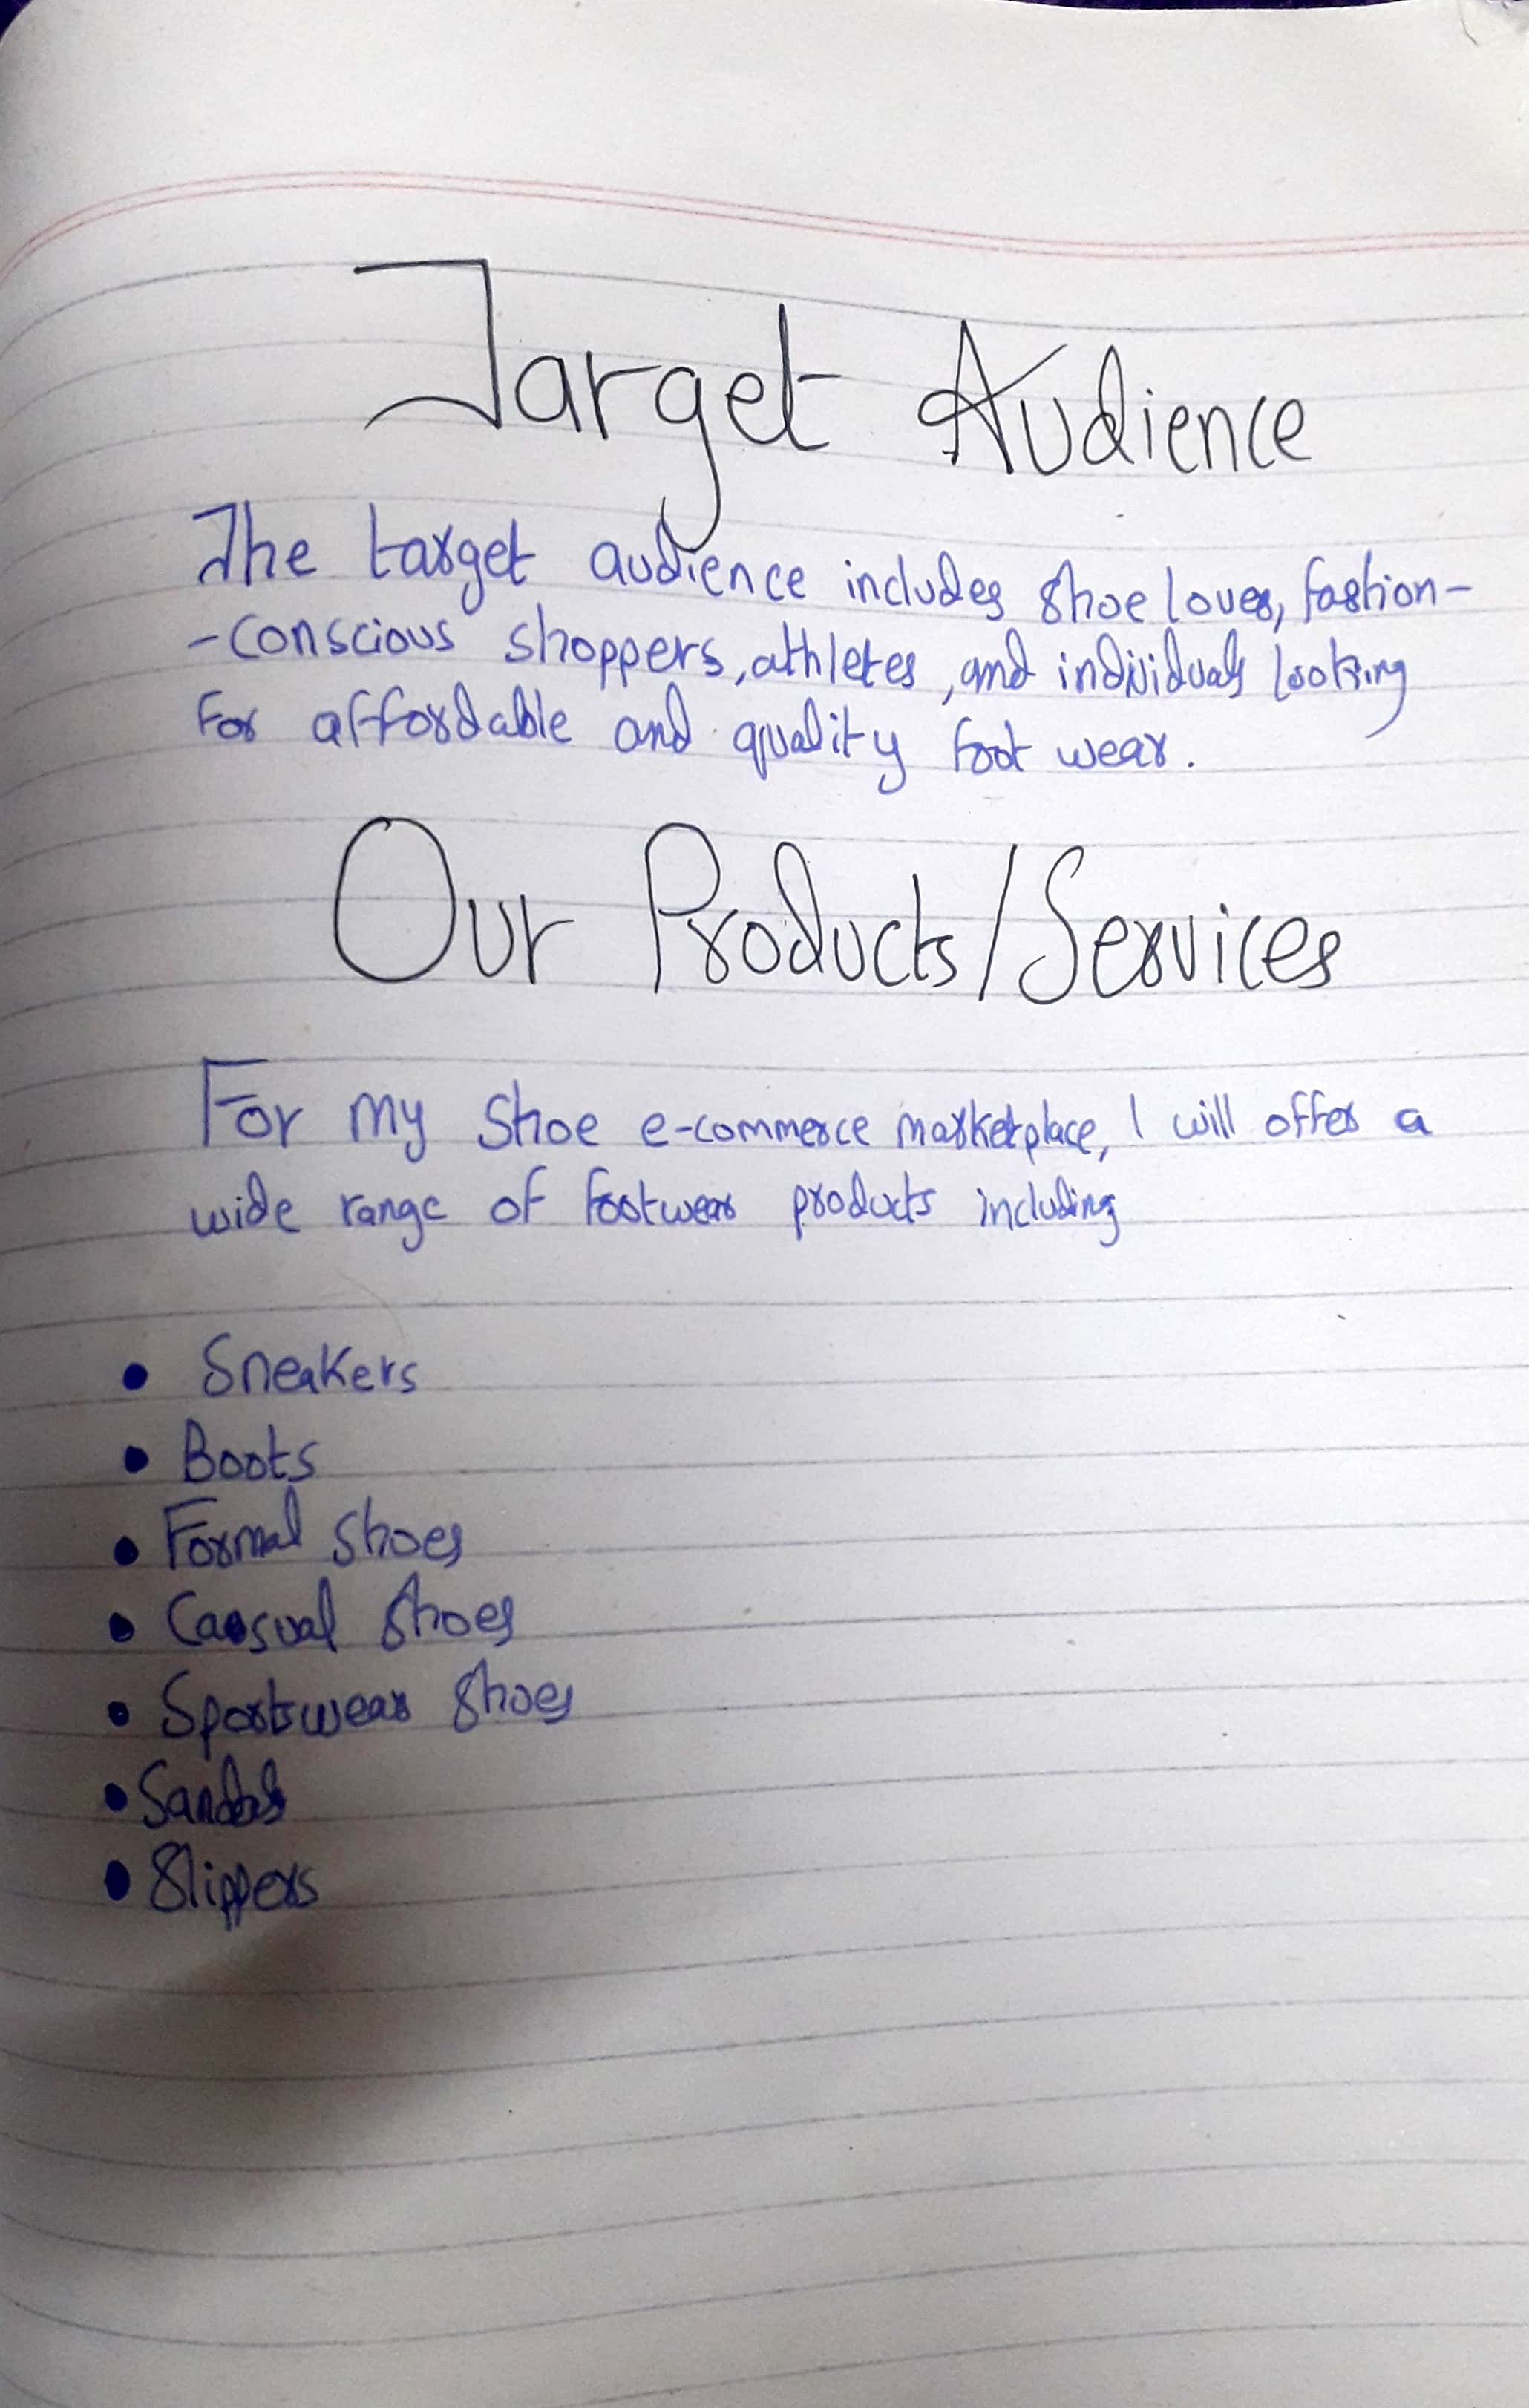 Target Audience
The target audience includes shoe loves, fashion-
-conscious shoppers, athletes, and individuals looking
For affordable and quality foot wear.
Our Products/Services
For my shoe e-commerce marketplace, I will offer a
wide range of footwear products including
• Sneakers
• Boots
• Formal shoes
• Casual shoes
• Sportswear shoes
• Sandals
• Slippers